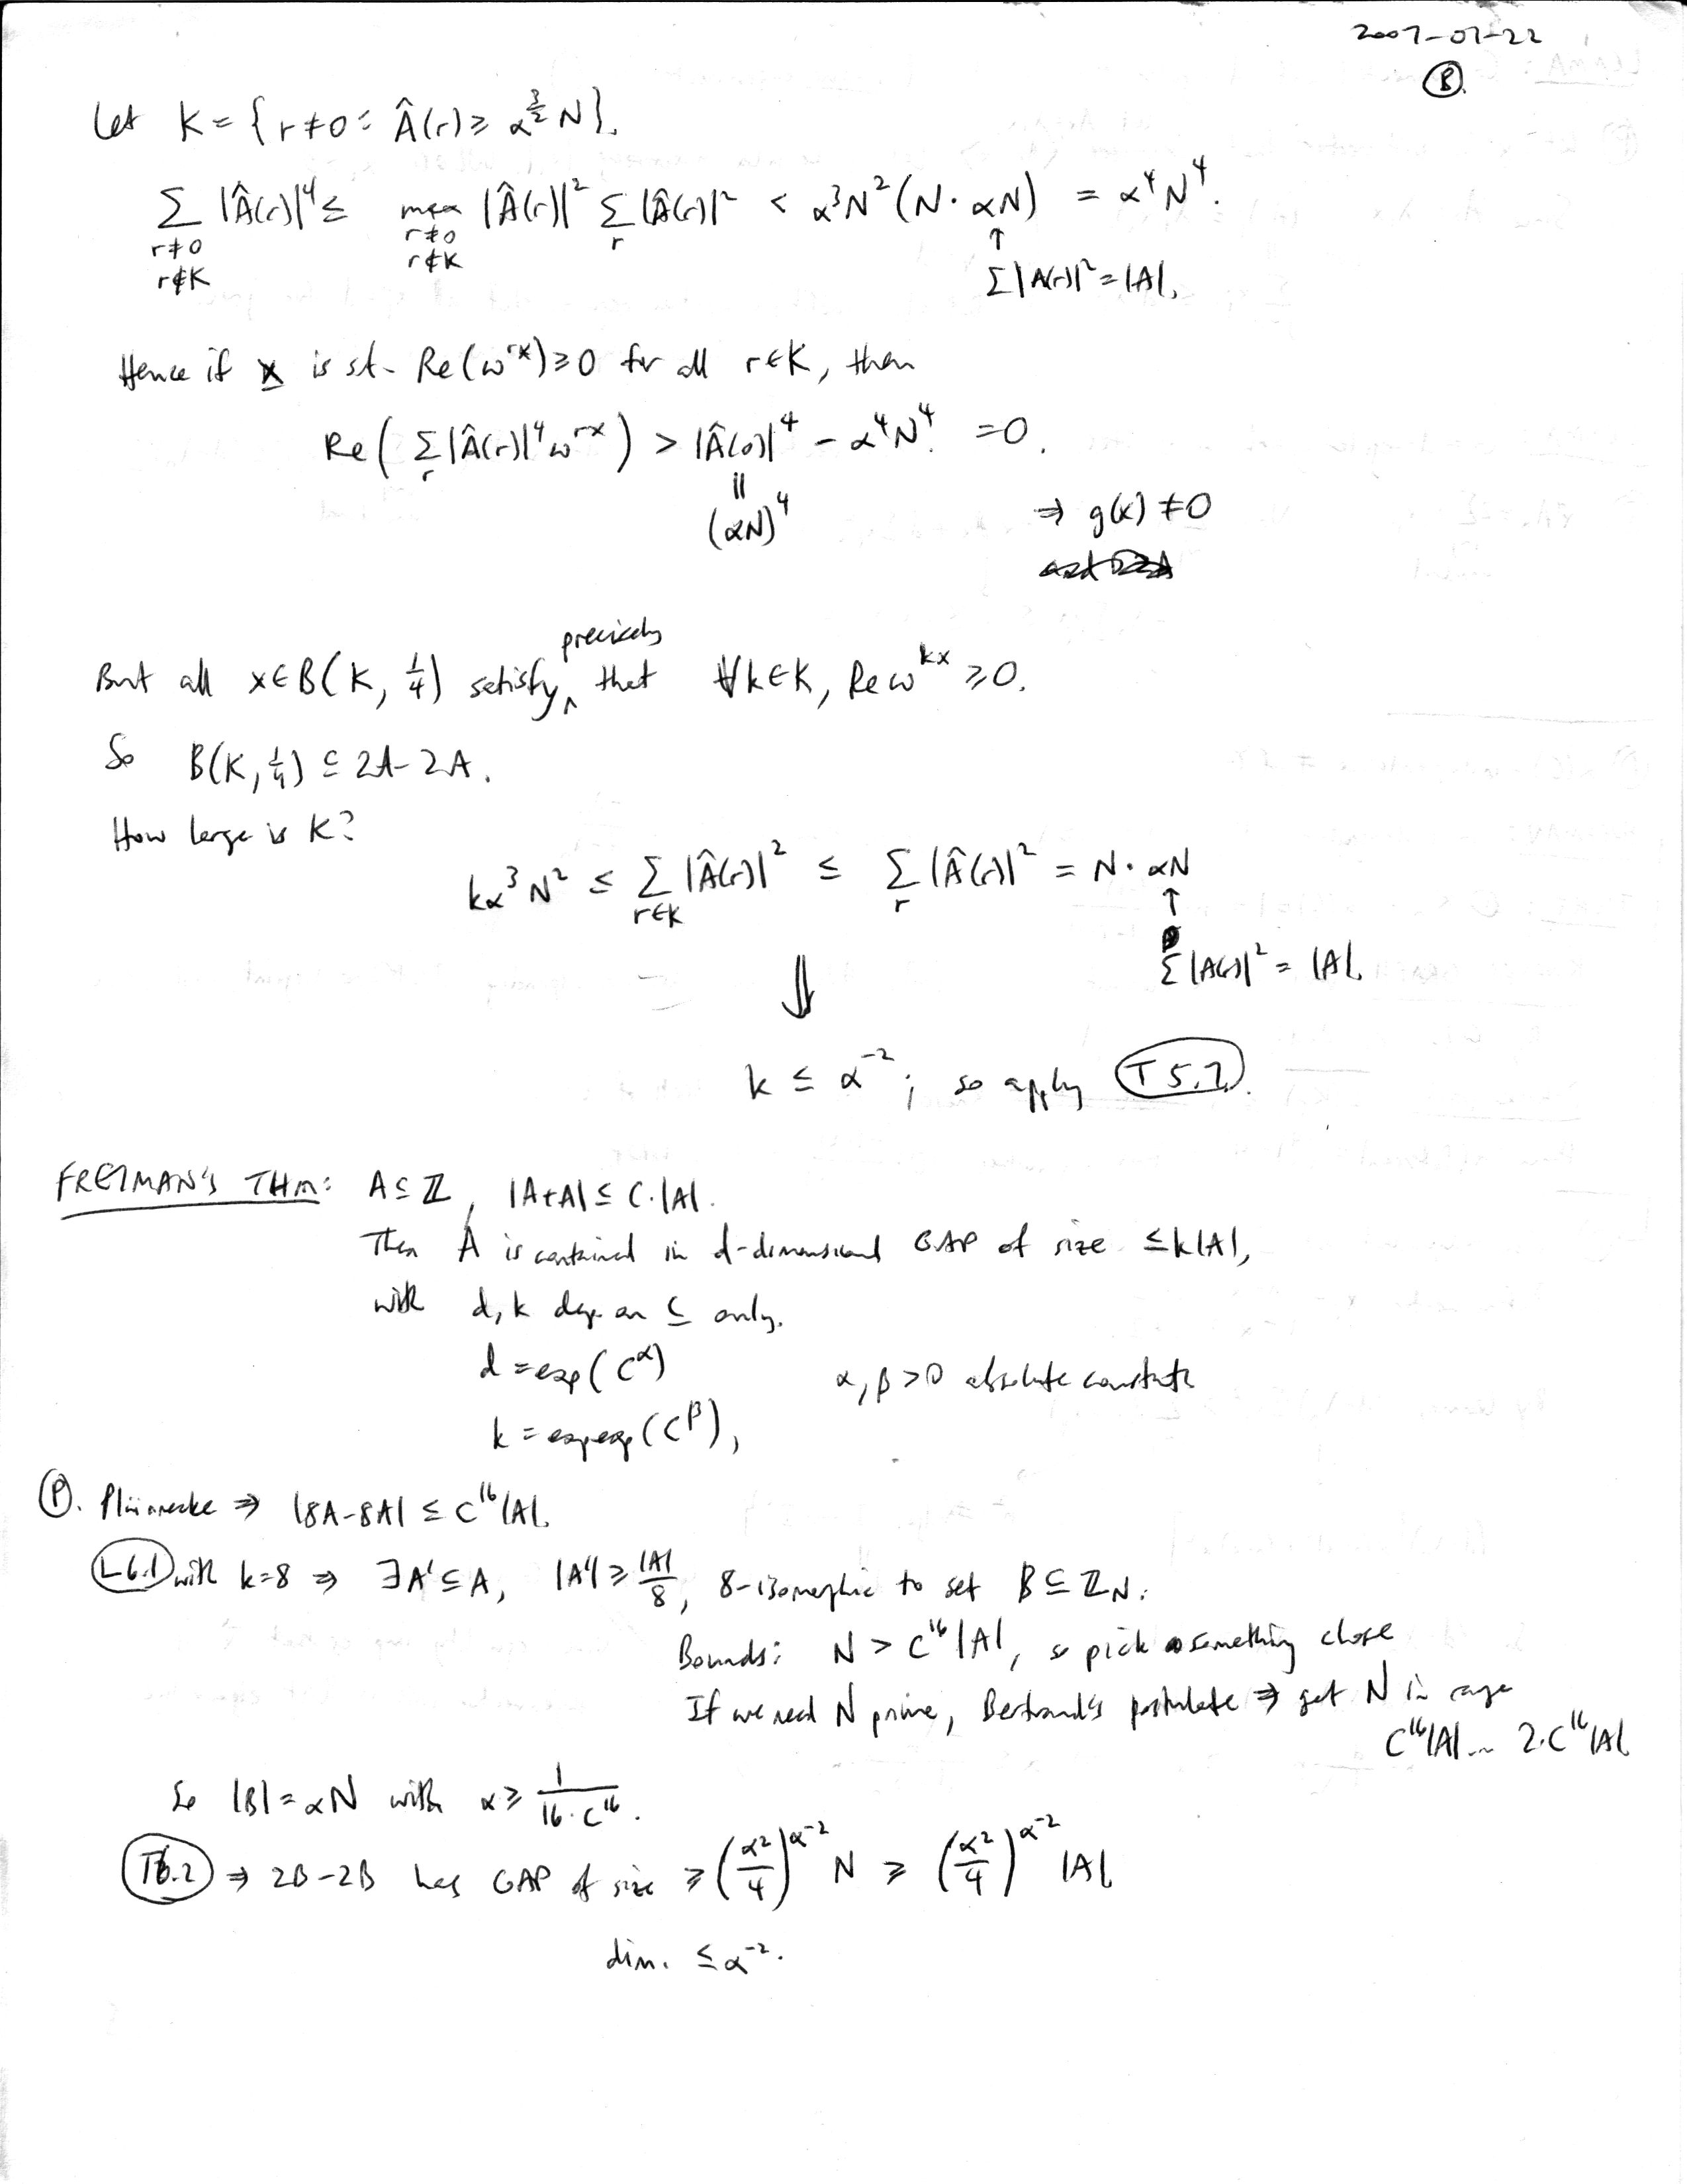 2007-07-22
Let K = {r≠0 : Â(r) ≥ α^{3/2} N}.
∑_{r≠0, r∉K} |Â(r)|⁴ ≤ max_{r≠0, r∉K} |Â(r)|² ∑_r |Â(r)|² < α³N²(N·αN) = α⁴N⁴.
↑
∑|A(r)|² = |A|.
Hence if x is st. Re(ω^{rx}) ≥ 0 for all r∈K, then
Re(∑_r |Â(r)|⁴ ω^{rx}) > |Â(0)|⁴ - α⁴N⁴. = 0.
||
(αN)⁴
⇒ g(x) ≠ 0
precisely
But all x∈B(K, 1/4) satisfy ∧ that ∀k∈K, Re ω^{kx} ≥ 0.
So B(K, 1/4) ⊆ 2A-2A.
How large is K?
kα³N² ≤ ∑_{r∈K} |Â(r)|² ≤ ∑_r |Â(r)|² = N·αN
↑
∑|A(r)|² = |A|.
⇓
k ≤ α^{-2} ; so apply T 5.7.
FREIMAN'S THM: A⊆ℤ, |A+A| ≤ C·|A|.
Then A is contained in d-dimensional GAP of size ≤ k|A|,
with d, k dep. on C only.
d = exp(C^α)
α, β > 0 absolute constants
k = expexp(C^β),
P. Plünnecke ⇒ |8A-8A| ≤ C^{16}|A|.
L6.1 with k=8 ⇒ ∃A'⊆A, |A'| ≥ |A|/8, 8-isomorphic to set B⊆ℤ_N.
Bounds: N > C^{16}|A|, so pick something close
If we need N prime, Bertrand's postulate ⇒ get N in range
C^{16}|A| ... 2·C^{16}|A|
So |B| = αN with α ≥ 1/(16·C^{16}).
T6.2 ⇒ 2B-2B has GAP of size ≥ (α²/4)^{α^{-2}} N ≥ (α²/4)^{α^{-2}} |A|
dim. ≤ α^{-2}.